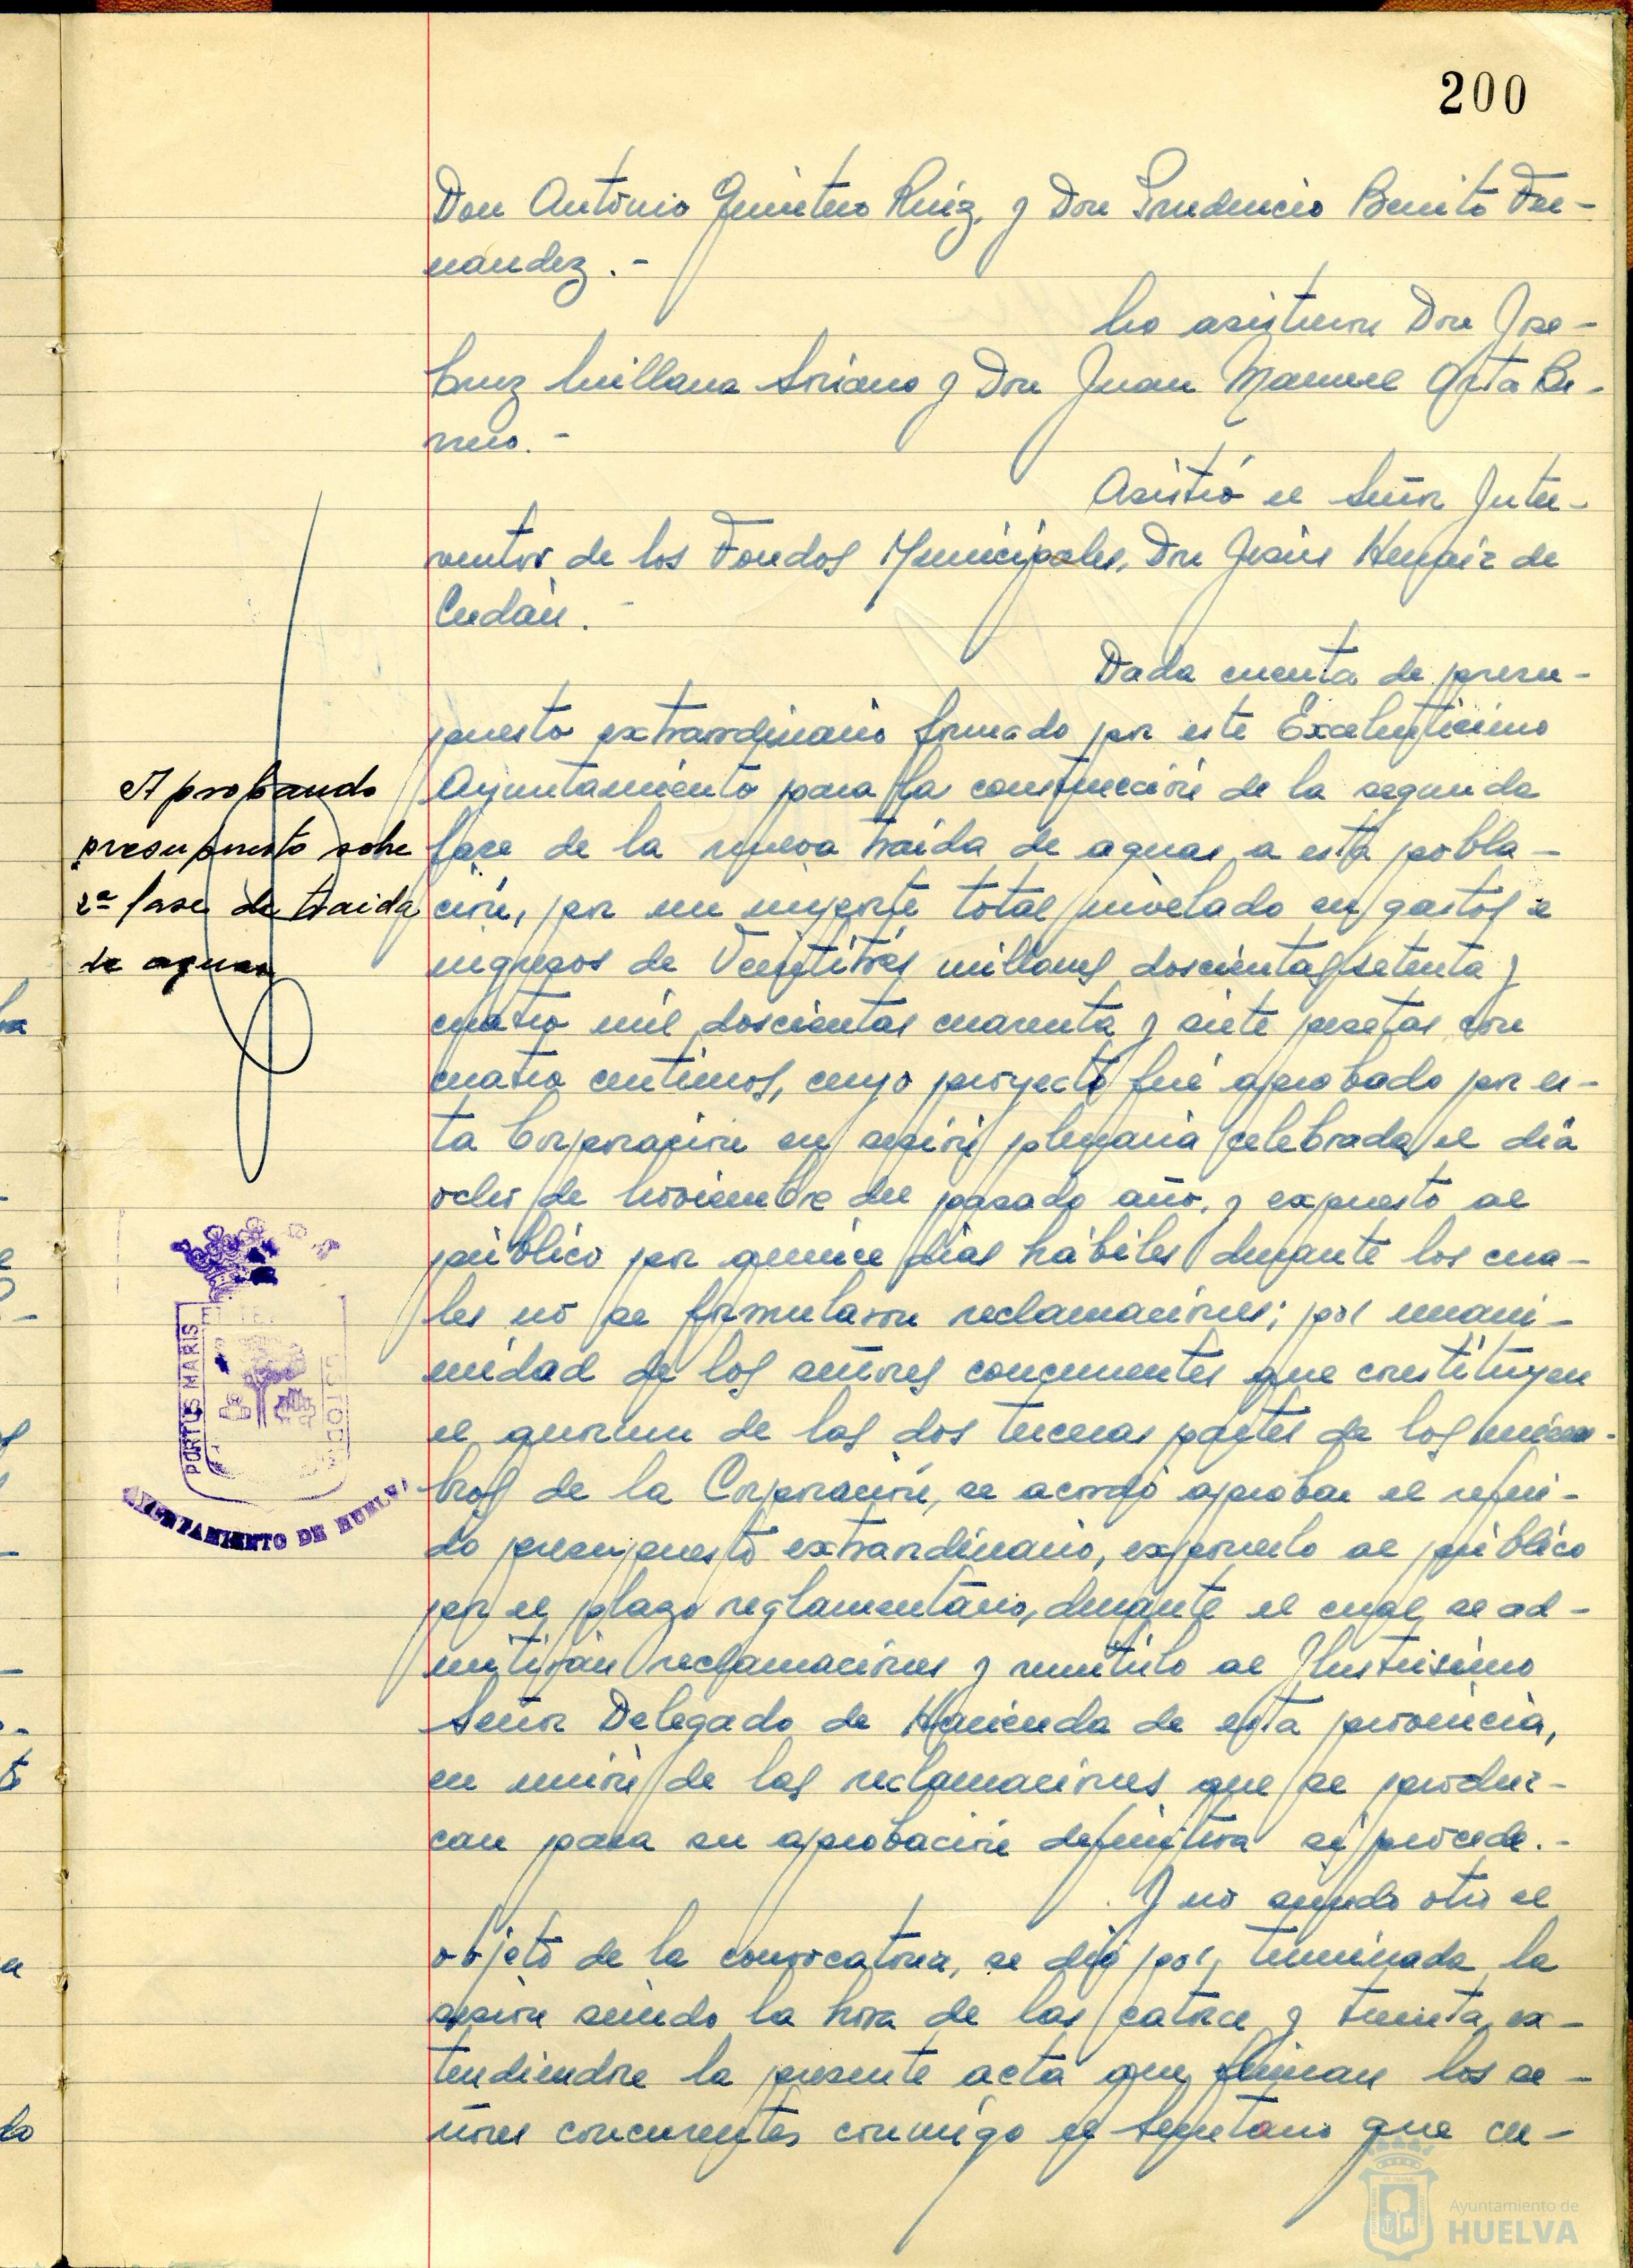 200
Don Antonio Quintero Ruiz, y Don Prudencio Benito Fer-
nandez.-
No asistieron Don Jose-
Cruz Millana Soriano y Don Juan Manuel Orta Be-
rreo.-
Asistió el Señor Inter-
ventor de los Fondos Municipales, Don Jesús de
Dada cuenta de presu-
puesto extraordinario formado por este Excelentísimo
Ayuntamiento para la construcción de la segunda
fase de la nueva traída de aguas a esta pobla-
ción, por un importe total nivelado en gastos e
ingresos de Veintitrés millones doscientas setenta y
cuatro mil doscientas cuarenta y siete pesetas con
cuatro centimos, cuyo proyecto fué aprobado por es-
ta Corporación en sesión plenaria celebrada el día
ocho de Noviembre del pasado año, y expuesto al
público por quince días hábiles durante los cua-
les no se formularon reclamaciones; por unani-
midad de los señores concurrentes que constituyen
el quorum de las dos terceras partes de los miem-
bros de la Corporación, se acordó aprobar el referi-
do presupuesto extraordinario, exponerlo al público
por el plazo reglamentario, durante el cual se ad-
mitirán reclamaciones y remitirlo al Ilustrísimo
Señor Delegado de Hacienda de esta provincia,
en unión de las reclamaciones que se produz-
can para su aprobación definitiva si procede.-
Y no siendo otro el
objeto de la convocatoria, se dió por terminada la
sesión siendo la hora de las catorce y treinta, ex-
tendiendose la presente acta que firman los se-
ñores concurrentes conmigo el Secretario que cer-
Aprobando
presupuesto sobre
2ª fase de traida
de aguas
PORTUS MARIS
ET TE
CUSTODIA
AYUNTAMIENTO DE HUELVA
Ayuntamiento de
HUELVA